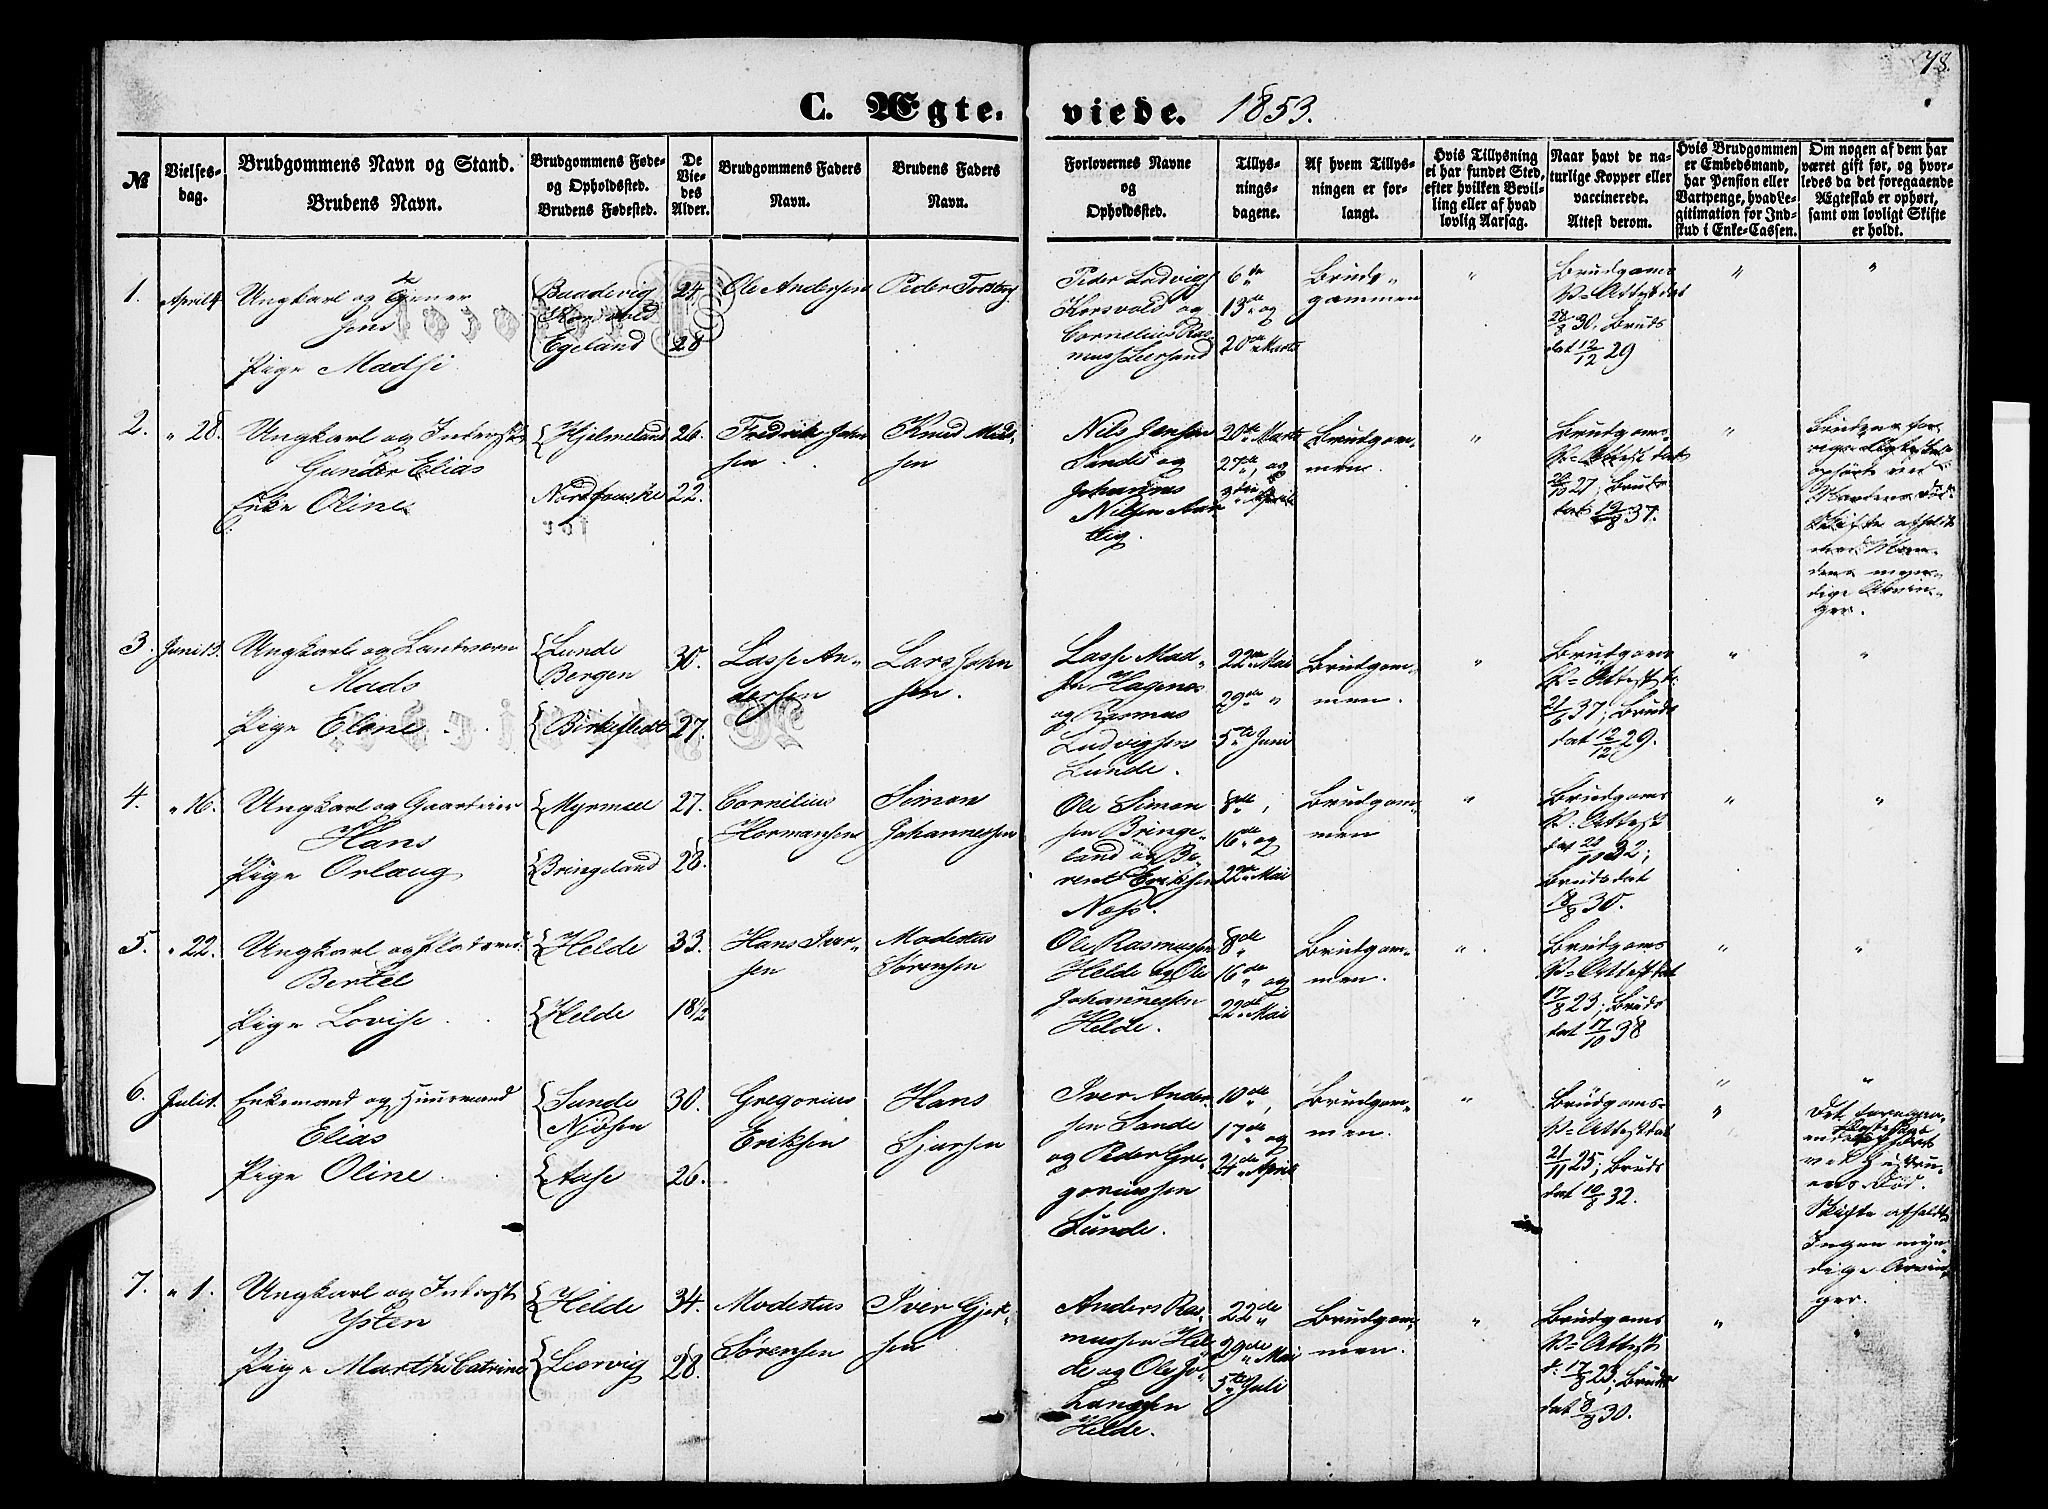 78.
C. Ægte-
viede. 1853.
№
Vielses-
dag.
Brudgommens Navn og Stand.
Brudens Navn.
Brudgommens Føde-
og Opholdssted.
Brudens Fødested.
De
Vie-
des
Alder.
Brudgommens Faders
Navn.
Brudens Faders
Navn.
Forlovernes Navne
og
Opholdssted.
Tillys-
nings-
dagene.
Af hvem Tillys-
ningen er for-
langt.
Hvis Tillysning
ei har fundet Sted,
efter hvilken Bevil-
ling eller af hvad
lovlig Aarsag.
Naar havt de na-
turlige Kopper eller
vaccinerede.
Attest derom.
Hvis Brudgommen
er Embedsmand,
har Pension eller
Vartpenge, hvad Le-
gitimation for Ind-
skud i Enke-Cassen.
Om nogen af dem har
været gift før, og hvor-
ledes da det foregaaende
Ægteskab er ophørt,
samt om lovligt Skifte
er holdt.
1.
April 4
Ungkarl og
Jens
Pige Madsi
Egeland
24
28
Ole Andersen
Peder
Peder Ludvigs
Korsvold og
Cornelius Ras
muss
6de
13de og
20de Marts
Brud-
gommen
Brudgoms
V=Attest dat
28/8 30. Bruds
dat 12/12 29
2.
" 28.
Ungkarl og Inderst
Gunder Elias
Enke Oline
Hjelmeland
26.
22.
Fredrik John
sen
Knud Mad-
sen
Nils Jensen
Sande og
Johannes
Nilsen Aar
vig.
20de Marts
27de, og
3die April
Brudgom-
men.
Brudgoms
V=Attest dat
27; Bruds
dat 19/8 37.
Brudens for
rige Ægteska
ophørt ved
Mandens Død
Skifte afholdt
med Man-
dens myn-
dige Arvin-
ger.
3.
Juni 13.
Ungkarl og
Mads
Pige Eline
Lunde
Bergen
30.
27.
Lasse An-
dersen
Lars John
sen.
Lasse Mad-
sen Hagenes
og Rasmus
Ludvigsen
Lunde.
22de Mai
29de "
5te Juni
Brudgom-
men.
Brudgoms
V=Attest d:
21/6 37; Bruds
dat 12/12 29.
4.
" 16.
Ungkarl og Gaardeier
Hans
Pige Orlaug
Myrmel
Bringeland
27.
28.
Cornelius
Hermansens
Simon
Johannessen
Ole Simon
sen Bringe-
land og Be-
rent Eriksen
Næss.
8de,
16de og
22de Mai
Brudgom-
men
Brudgoms
V: Attest
dat 32;
Bruds dat
18/8 30.
5.
" 22.
Ungkarl og Pladsmd
Bertel
Pige Lovise
Helde
Helde
33.
18½
Hans Iver-
sen
Modestus
Sørensen
Ole Rasmussen
Helde og Ole
Johannessen
Helde.
8de
16de og
22de Mai
Brudgom-
men.
Brudgoms
V=Attest dat
17/8 23; Bruds
dat 17/10 38
6.
Juli 1.
Enkemand og Huusmand
Elias
Pige Oline
Sunde
Njøsen
Aase
30.
26.
Gregorius
Eriksen
Hans
Iver Ander
sen Sande
og Peder Gre-
goriussen
Sunde.
10de,
17de og
24de April
Brudgom-
men.
Brudgoms-
V=Attest dat
21/11 25; Bruds
dat 10/8 32.
ved Hustru-
ens Død.
Skifte afholdt
Ingen myn-
dige Arvin
ger.
7.
" 1.
Ungkarl og Inderst
Ysten
Pige Marthe Catrine
Helde
Leervig
34.
28.
Modestus
Sørensen
Iver Gjert-
sen
Anders Ras-
mussen Hel-
de og Ole Jo-
hansen
Helde.
22de
29de Mai
5te Juli
Brudgom-
men.
Brudgoms
V=Attest
d: 17/8 23; Bruds
dat 8/8 30.